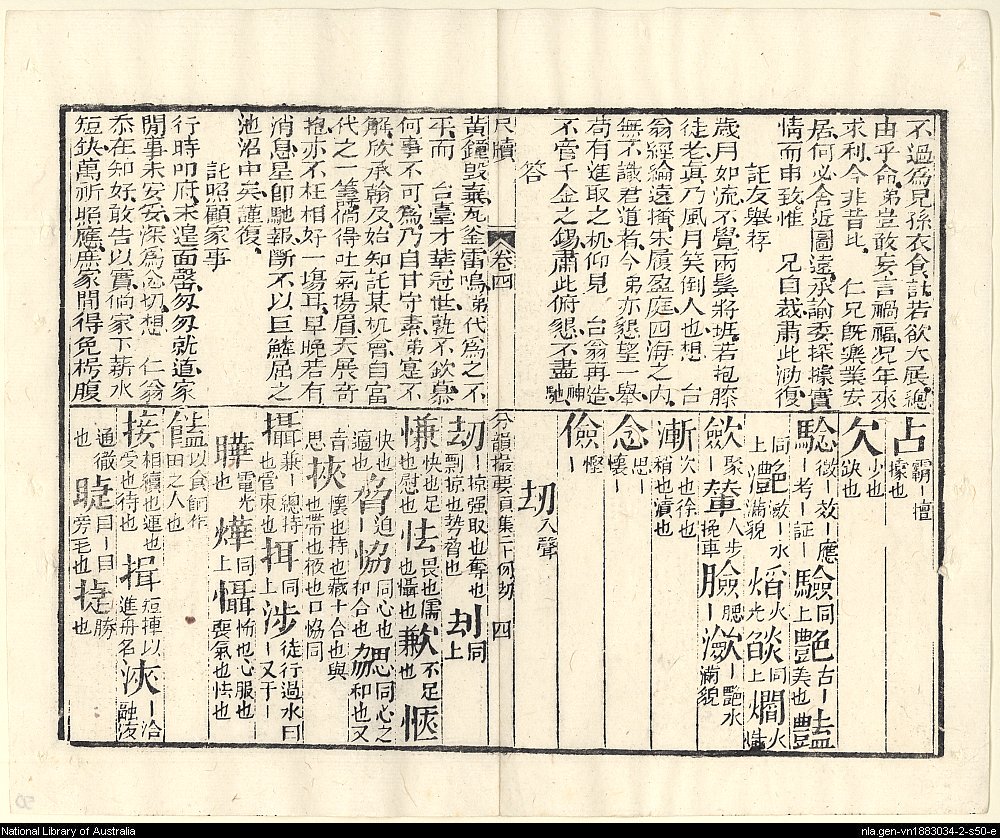 不過為兒孫衣食計若欲大展總
由乎命弟豈敢妄言禍福况年來
求利今非昔比 仁兄既樂業安
居何必舍近圖遠承諭委探據實
情而申致惟 兄自裁肅此泐復
託友舉稃
歲月如流不覺兩鬓將班若抱膝
徒老真乃風月笑倒人也想 台
翁經綸遠播朱履盈庭四海之內
無不識君道者今弟亦懇望一舉
苟有進取之机仰見 台翁再造
不啻千金之錫肅此俯懇不盡神馳
答
尺牘
卷四
黃鐘毀棄瓦釜雷鳴弟代為之不
平而 台臺才華冠世孰不欽慕
何事不可為乃自甘守素弟寔不
解欣承翰及始知託某机曾自富
代之一籌倘得吐氣揚眉大展奇
抱亦不枉相好一塲耳早晚若有
消息星卽馳報斷不以巨鱗屈之
池沼中矣謹復
託照顧家事
行時叩府未遑面罄匆匆就道家
閒事未安安深為念切想 仁翁
忝在知好敢告以實倘家下薪水
短缺萬祈照應庶家閒得免枵腹
占霸丨擅據也
欠少也缺也
驗徵丨效丨應丨考丨証丨 驗同上 艷美也 豔古丨
灔同上 瀲丨水滿貌 焰火光 燄同上 爓火
斂丨聚 輦人步挽車 臉丨腮 瀲丨灔水滿貌
漸次也徐也稍也漬也
念思丨懷丨
儉慳丨
刧入聲
分韻撮要貞集二十 四
刧掠强取也奪也剽掠也势脅也 刦同上
慊快也足也慰也 怯畏也懦也懾也 歉不足也 愜
快也適也 脅迫也 協同心也和合也 勰同心之和也又
音 挾懷也持也藏也帶也 十合也與口恊同
攝兼也丨總持也管束也 揖同上 涉徒行過水曰丨又干丨
曄電光也 燁同上 懾怖也心服也喪氣也怯也
饁以食餉作田之人也
接相續也連也受也待也 揖短棹以進舟名 浹丨洽融液
通徹也 睫目丨目旁毛也 捷勝也
National Library of Australia
nla.gen-vn1883034-2-s50-e